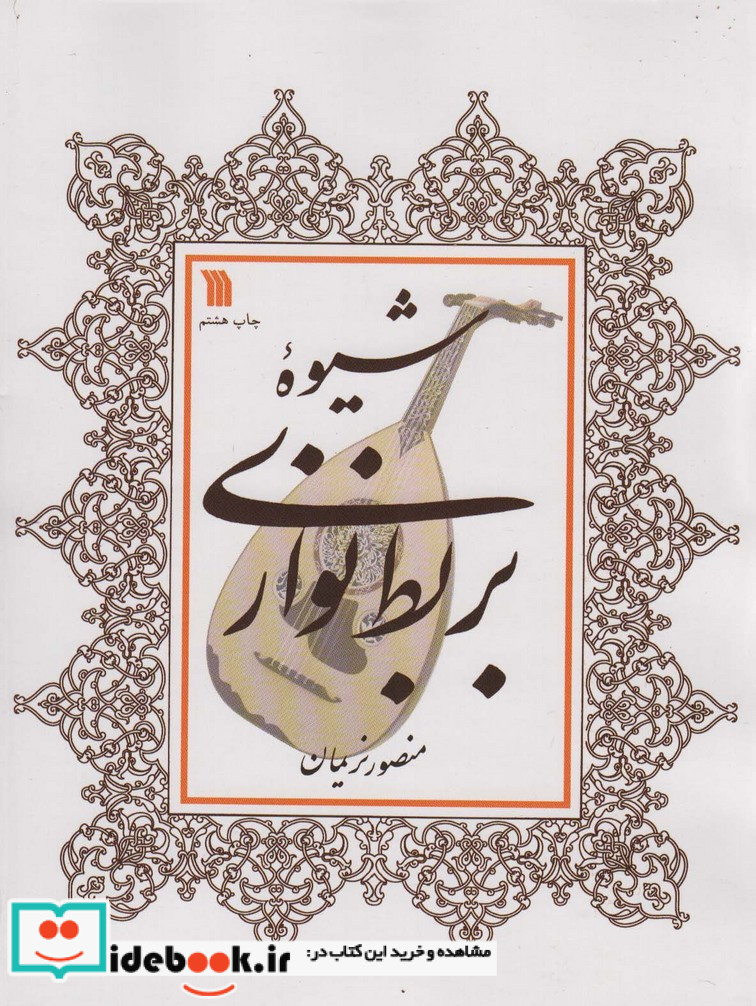 چاپ هشتم
شیوۀ
بربط نوازی
منصور نریمان
مشاهده و خرید این کتاب در:
idebook.ir